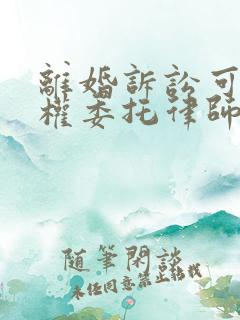 離婚訴訟可
權委托律師
隨筆閑談
未经同意禁止轉載